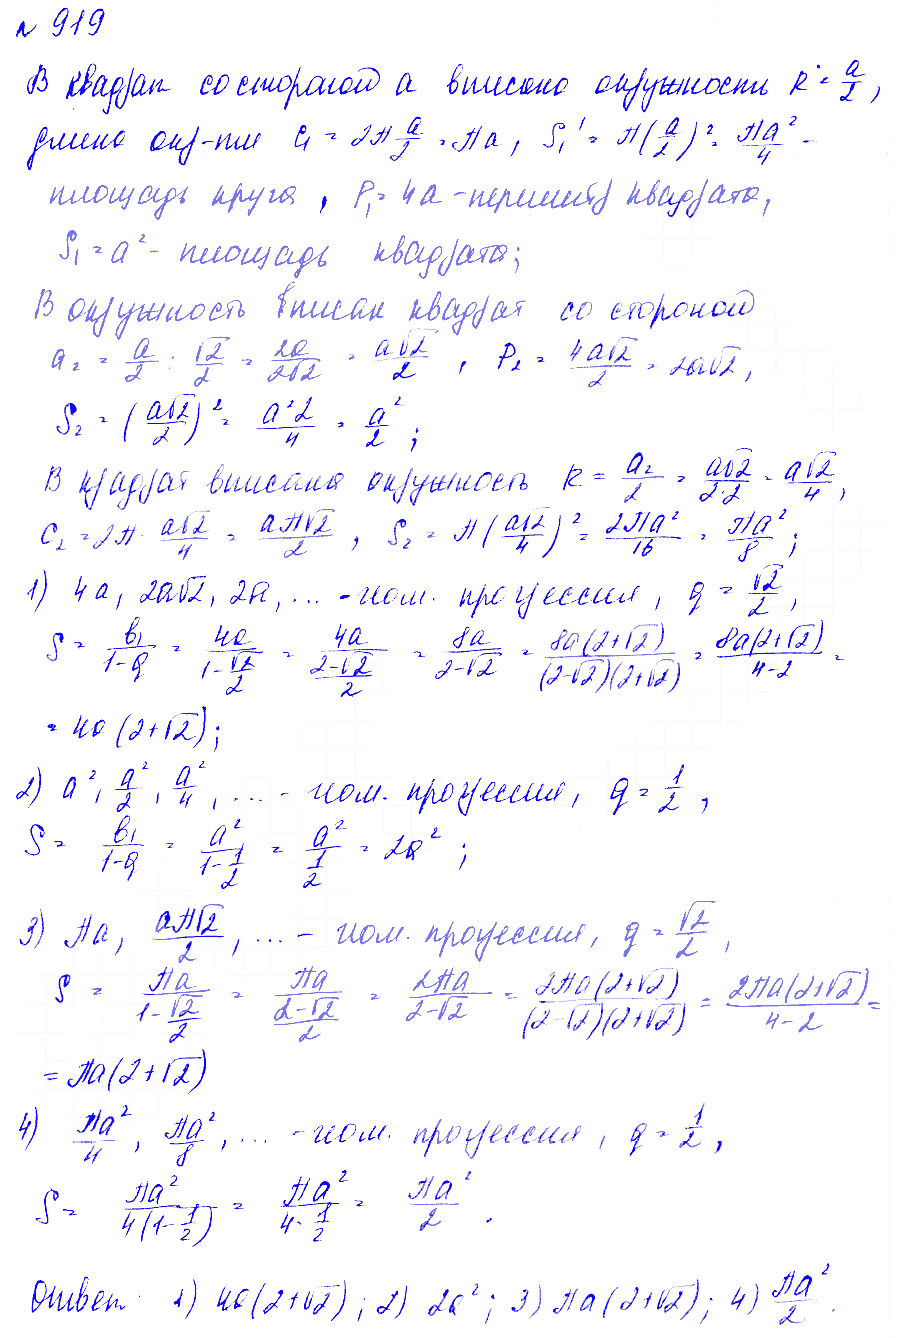 № 919
В квадрат со стороной a вписана окружность R = a/2,
длина окр-ти C₁ = 2π a/2 = πa, S₁' = π(a/2)² = πa²/4 –
площадь круга, P₁ = 4a – периметр квадрата,
S₁ = a² – площадь квадрата;
В окружность вписан квадрат со стороной
a₂ = a/2 : √2/2 = 2a/2√2 = a√2/2, P₂ = 4a√2/2 = 2a√2,
S₂ = (a√2/2)² = a²2/4 = a²/2;
В квадрат вписана окружность R = a₂/2 = a√2/2·2 = a√2/4,
C₂ = 2π · a√2/4 = aπ√2/2, S₂ = π(a√2/4)² = 2πa²/16 = πa²/8;
1) 4a, 2a√2, 2a, ... – геом. прогрессия, q = √2/2,
S = b₁/1-q = 4a/1-√2/2 = 4a/2-√2/2 = 8a/2-√2 = 8a(2+√2)/(2-√2)(2+√2) = 8a(2+√2)/4-2 =
= 4a(2+√2);
2) a², a²/2, a²/4, ... – геом. прогрессия, q = 1/2,
S = b₁/1-q = a²/1-1/2 = a²/1/2 = 2a²;
3) πa, aπ√2/2, ... – геом. прогрессия, q = √2/2,
S = πa/1-√2/2 = πa/2-√2/2 = 2πa/2-√2 = 2πa(2+√2)/(2-√2)(2+√2) = 2πa(2+√2)/4-2 =
= πa(2+√2)
4) πa²/4, πa²/8, ... – геом. прогрессия, q = 1/2,
S = πa²/4(1-1/2) = πa²/4·1/2 = πa²/2.
Ответ 1) 4a(2+√2); 2) 2a²; 3) πa(2+√2); 4) πa²/2.